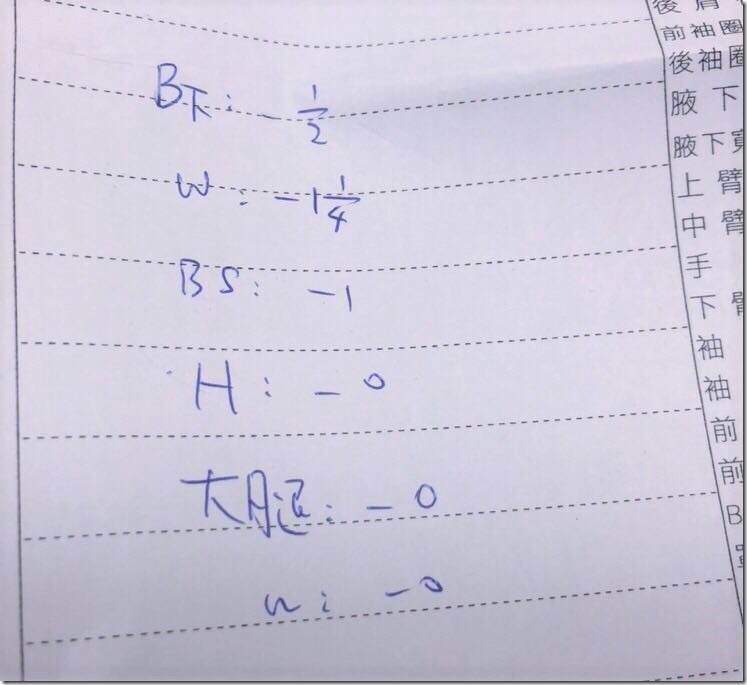 B下: - 1/2
W: -1 1/4
BS: -1
H: - 0
大腿: - 0
n: - 0
前袖圈
後袖圈
腋下
腋下
上臂
中臂
手
下臂
袖
袖
前
前
B